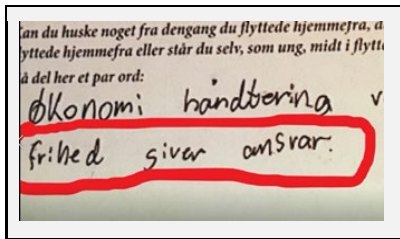 Kan du huske noget fra dengang du flyttede hjemmefra, d
lyttede hjemmefra eller står du selv, som ung, midt i flytt
å del her et par ord:
Økonomi håndtering v
frihed giver ansvar.